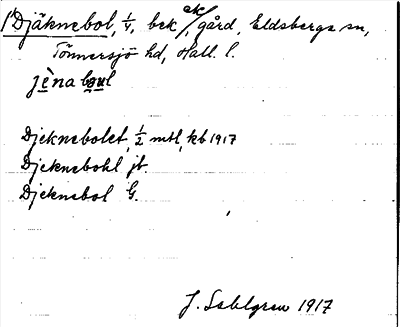 1) Djäknebol, 1/4, bek ek/, gård, Eldsberga sn,
Tönnersjö hd, Hall. l.
jènabωl
Djeknebolet, 1/2 mtl, kb 1917
Djeknebohl jb.
Djeknebol G.
J. Sahlgren 1917